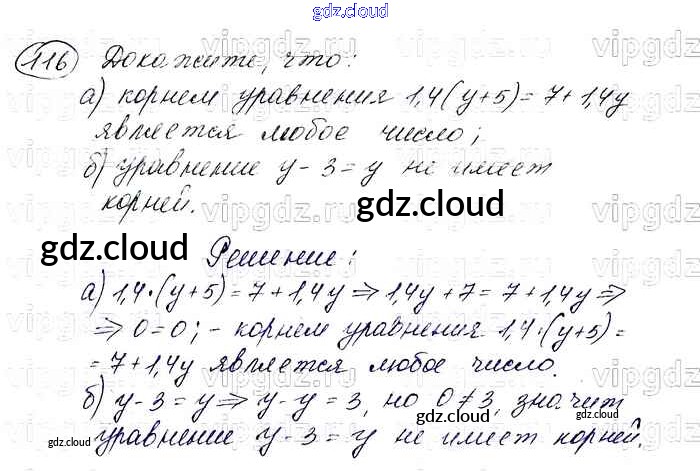 gdz.cloud
116 Докажите, что:
а) корнем уравнения 1,4(y+5)=7+1,4y
является любое число;
б) уравнение y-3=y не имеет
корней.
gdz.cloud
gdz.cloud
Решение:
а) 1,4·(y+5)=7+1,4y ⇒ 1,4y+7=7+1,4y ⇒
⇒ 0=0; - корнем уравнения 1,4·(y+5)=
=7+1,4y является любое число.
б) y-3=y ⇒ y-y=3, но 0≠3, значит
gdz.cloud
gdz.cloud
уравнение y-3=y не имеет корней.
gdz.cloud
vipgdz
vipgdz
vipgdz
vipgdz